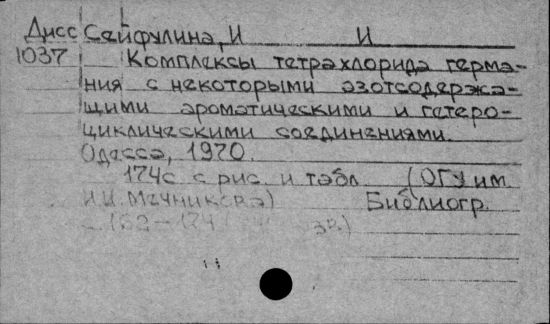 Дисс Сейфулина, И И
1037 Комплексы тетрахлорида герма-
ния с некоторыми азотсодержа-
щими ароматическими и гетеро-
циклическими соединениями.
Одесса, 1970.
174с с рис. и табл (ОГУ им.
И.И. Мечникова) Библиогр.
с. 162-174